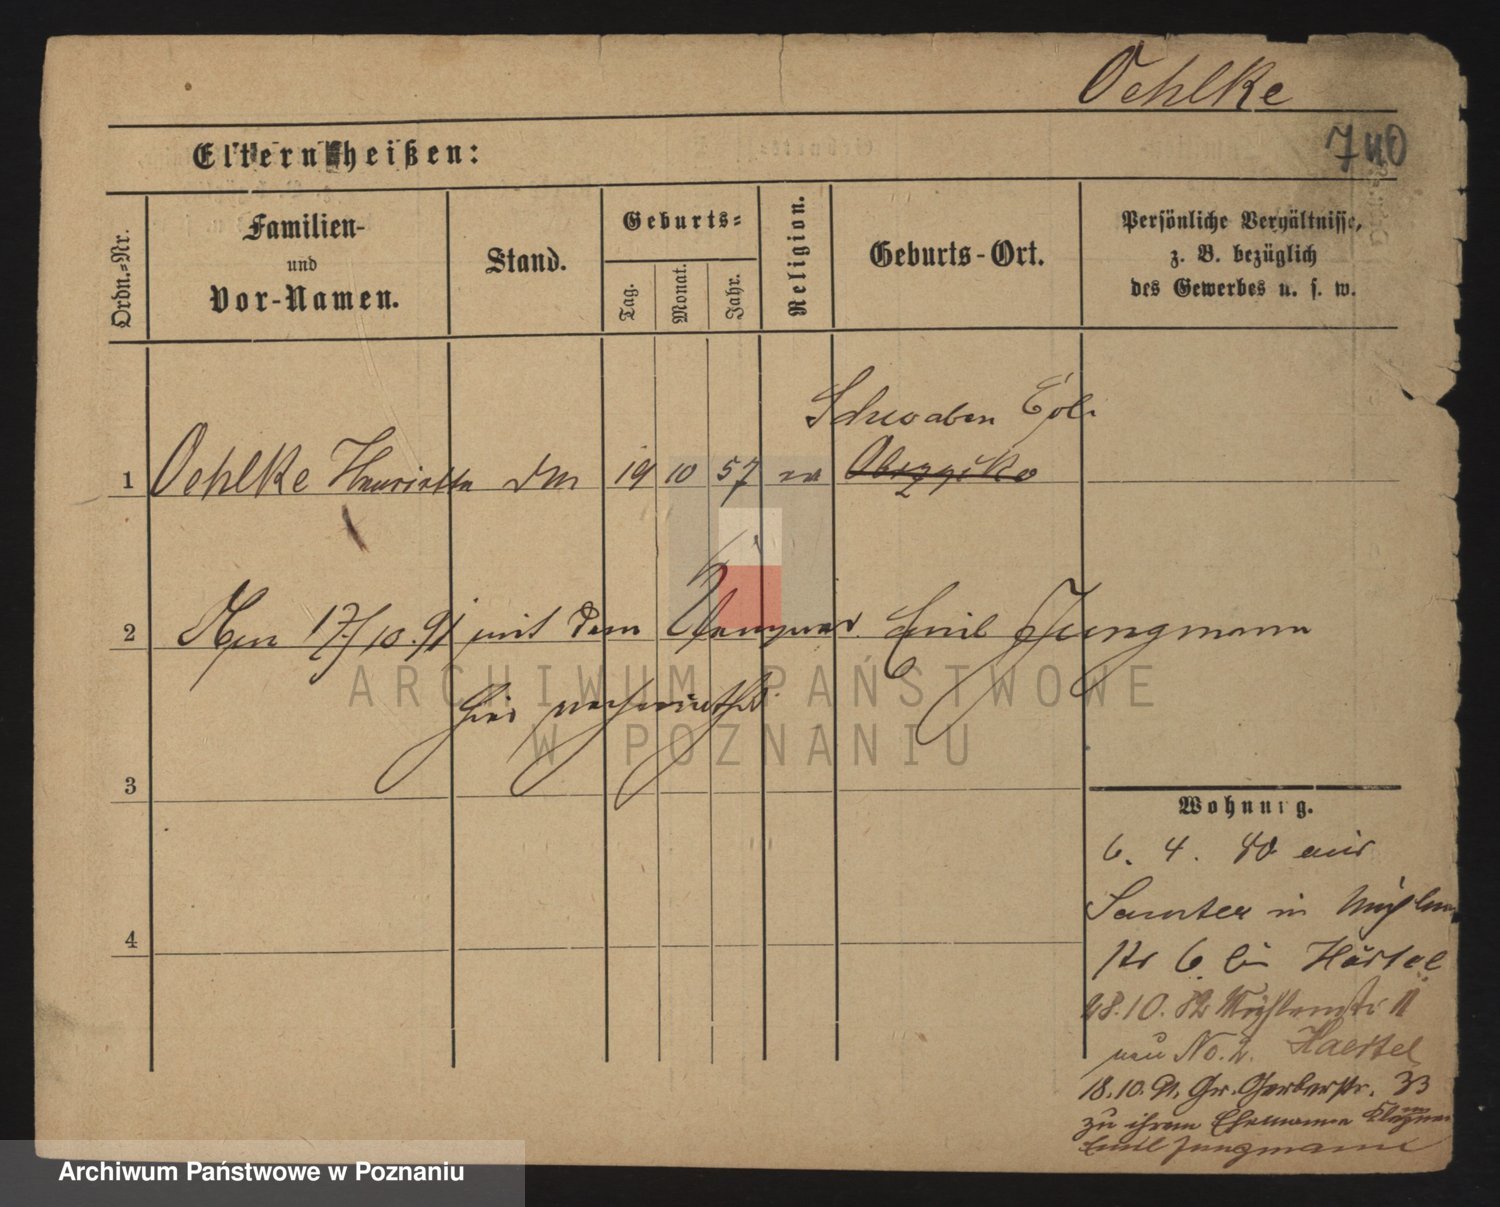 Oehlke
740
Eltern heißen:
Ordn.=Nr.
Familien-
und
Vor-Namen.
Stand.
Geburts=
Tag.
Monat.
Jahr.
Religion.
Geburts-Ort.
Persönliche Verhältnisse,
z. B. bezüglich
des Gewerbes u. s. w.
Schwaben
1 Oehlke Henriette 19 10 57 Obrzycko
2 17/10.91 mit dem Emil Jungmann
hier verheirathet.
3
Wohnung.
6. 4. 80 aus
Samter in
Nr 6 bei Härtel
4
28.10.82 Mühlenstr
neu No. 2. Haertel
18.10.91. Gr. Gerberstr. 33
zu ihrem Ehemanne
Emil Jungmann
ARCHIWUM PAŃSTWOWE
W POZNANIU
Archiwum Państwowe w Poznaniu